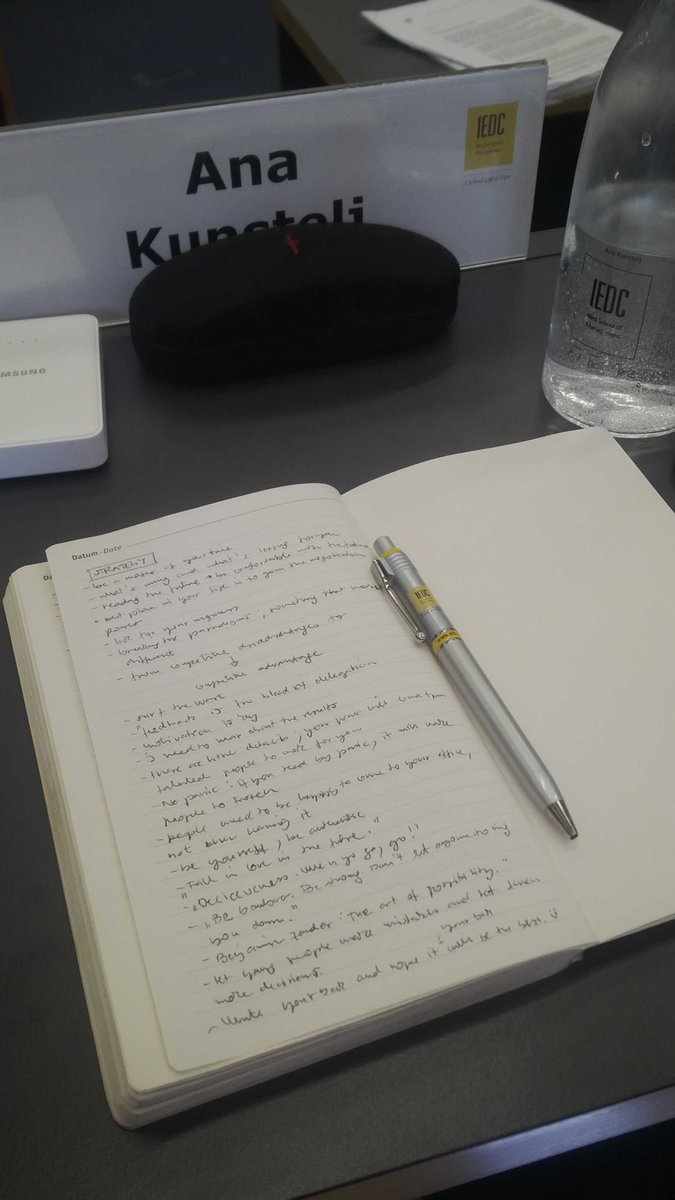 Ana
Kunstelj
IEDC
Bled School of
Management
A School with a View
SAMSUNG
Ana Kunstelj
IEDC
Bled School of
Management
Datum · Date
STRATEGY
- be a master of your time
- what's wrong and what's
- reading the future & be comfortable with the future
- best place in your life is to gain the negotiation
power
- look for your
- breaking the paradigms, something that
different
- from competitive disadvantages to
competitive advantage
- the
- "feedback is the blood of delegation
- motivation is
- I need to hear about the results
- there are little details, your
talented people to work for you
- No panic: if you lead by panic, it will make
people to
- people need to be happy to come to your office,
not when leaving it
- be yourself, be authentic
- "Fall in love in the future."
- "Decisiveness. When go go, go!"
- "Be bamboo. Be strong. Don't let
you down."
- Benjamin Zander: The art of possibility."
- let young people make mistakes and let them
make decisions.
your best
- Write your book and hope it will be the best. ☺
IEDC